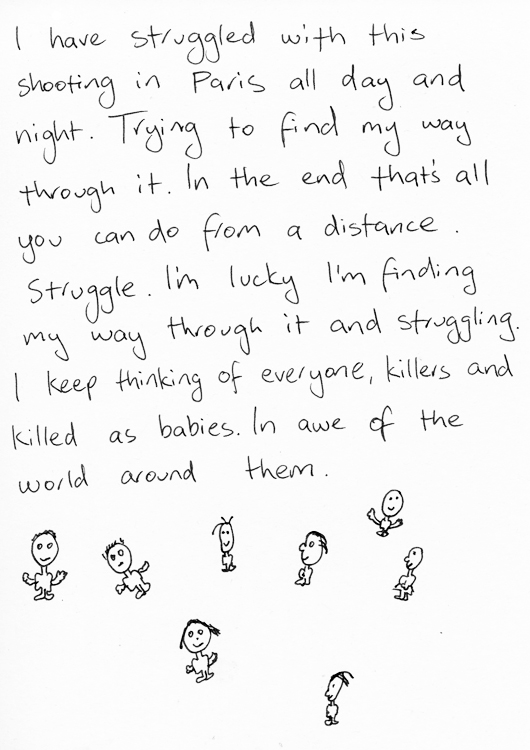 I have struggled with this
shooting in Paris all day and
night. Trying to find my way
through it. In the end that's all
you can do from a distance.
Struggle. I'm lucky I'm finding
my way through it and struggling.
I keep thinking of everyone, killers and
killed as babies. In awe of the
world around them.